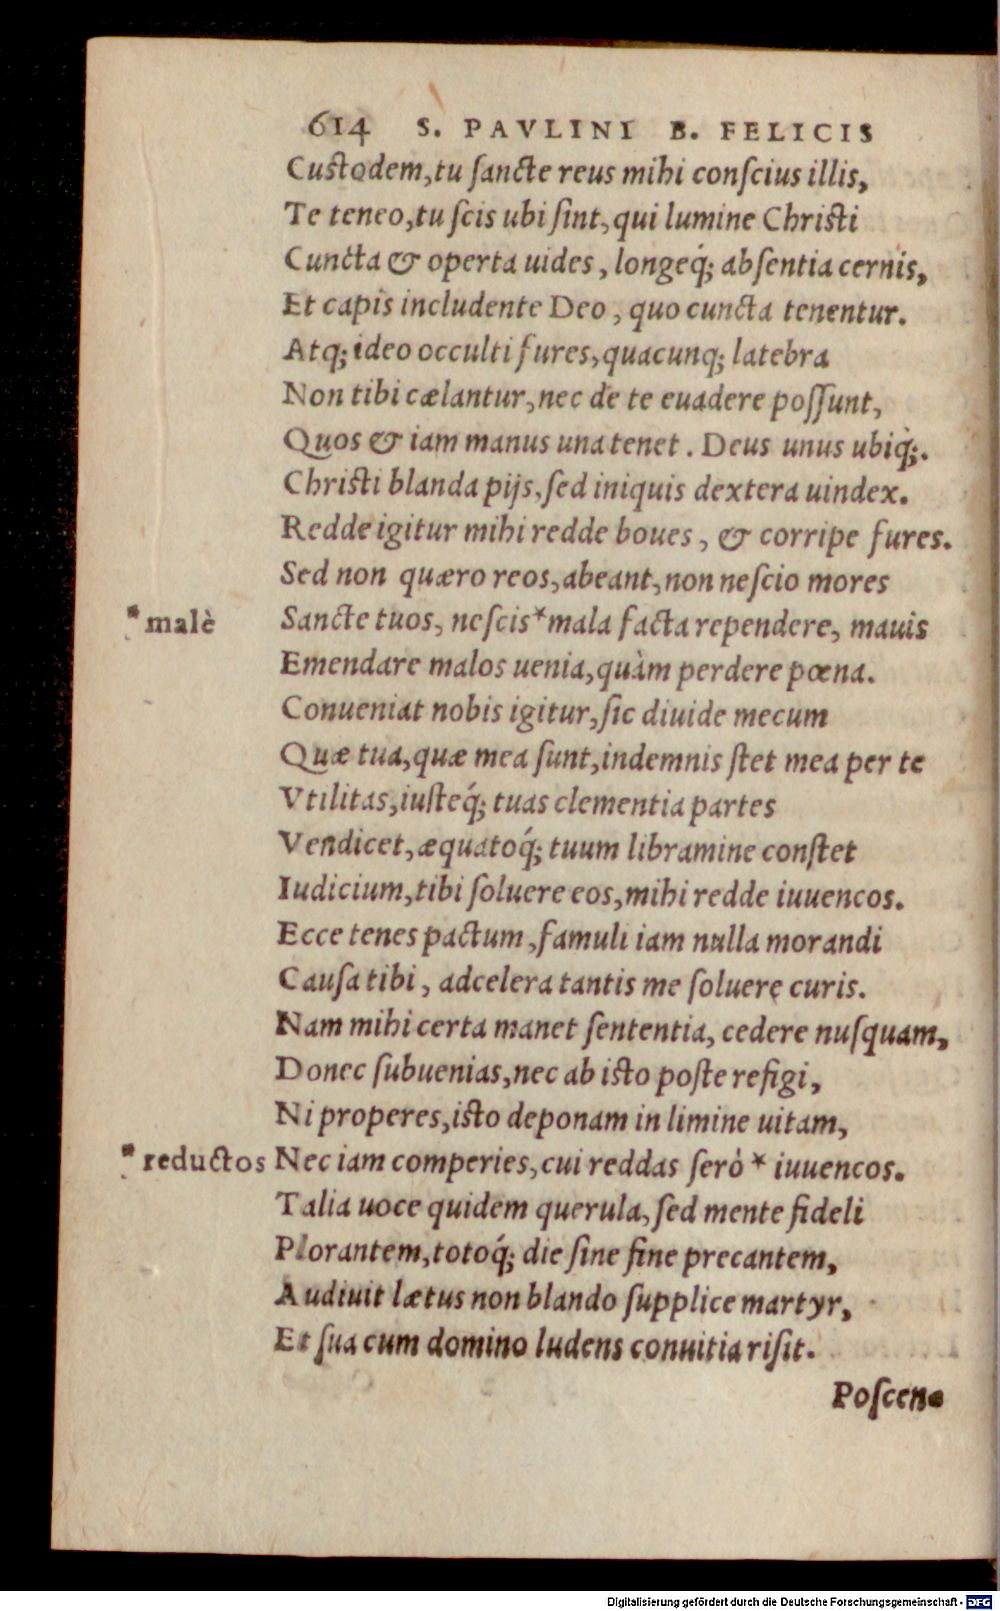 614 S. PAVLINI B. FELICIS
Custodem, tu ſancte reus mihi conſcius illis,
Te teneo, tu ſcis ubi ſint, qui lumine Chriſti
Cuncta & operta uides, longeq́; abſentia cernis,
Et capis includente Deo, quo cuncta tenentur.
Atq; ideo occulti fures, quacunq; latebra
Non tibi cælantur, nec de te euadere poſſunt,
Quos & iam manus una tenet. Deus unus ubiq́;.
Chriſti blanda pijs, ſed iniquis dextera uindex.
Redde igitur mihi redde boues, & corripe fures.
Sed non quæro reos, abeant, non neſcio mores
* malè Sancte tuos, neſcis * mala facta rependere, mauis
Emendare malos uenia, quàm perdere pœna.
Conueniat nobis igitur, ſic diuide mecum
Quæ tua, quæ mea ſunt, indemnis ſtet mea per te
Vtilitas, iuſteq́; tuas clementia partes
Vendicet, æquatoq́; tuum libramine conſtet
Iudicium, tibi ſoluere eos, mihi redde iuuencos.
Ecce tenes pactum, famuli iam nulla morandi
Cauſa tibi, adcelera tantis me ſoluere curis.
Nam mihi certa manet ſententia, cedere nuſquam,
Donec ſubuenias, nec ab iſto poſte refigi,
Ni properes, iſto deponam in limine uitam,
* reductos Nec iam comperies, cui reddas ſerò * iuuencos.
Talia uoce quidem querula, ſed mente fideli
Plorantem, totoq́; die ſine fine precantem,
Audiuit lætus non blando ſupplice martyr,
Et ſua cum domino ludens conuitia riſit.
Poſcen-
Digitalisierung gefördert durch die Deutsche Forschungsgemeinschaft - DFG